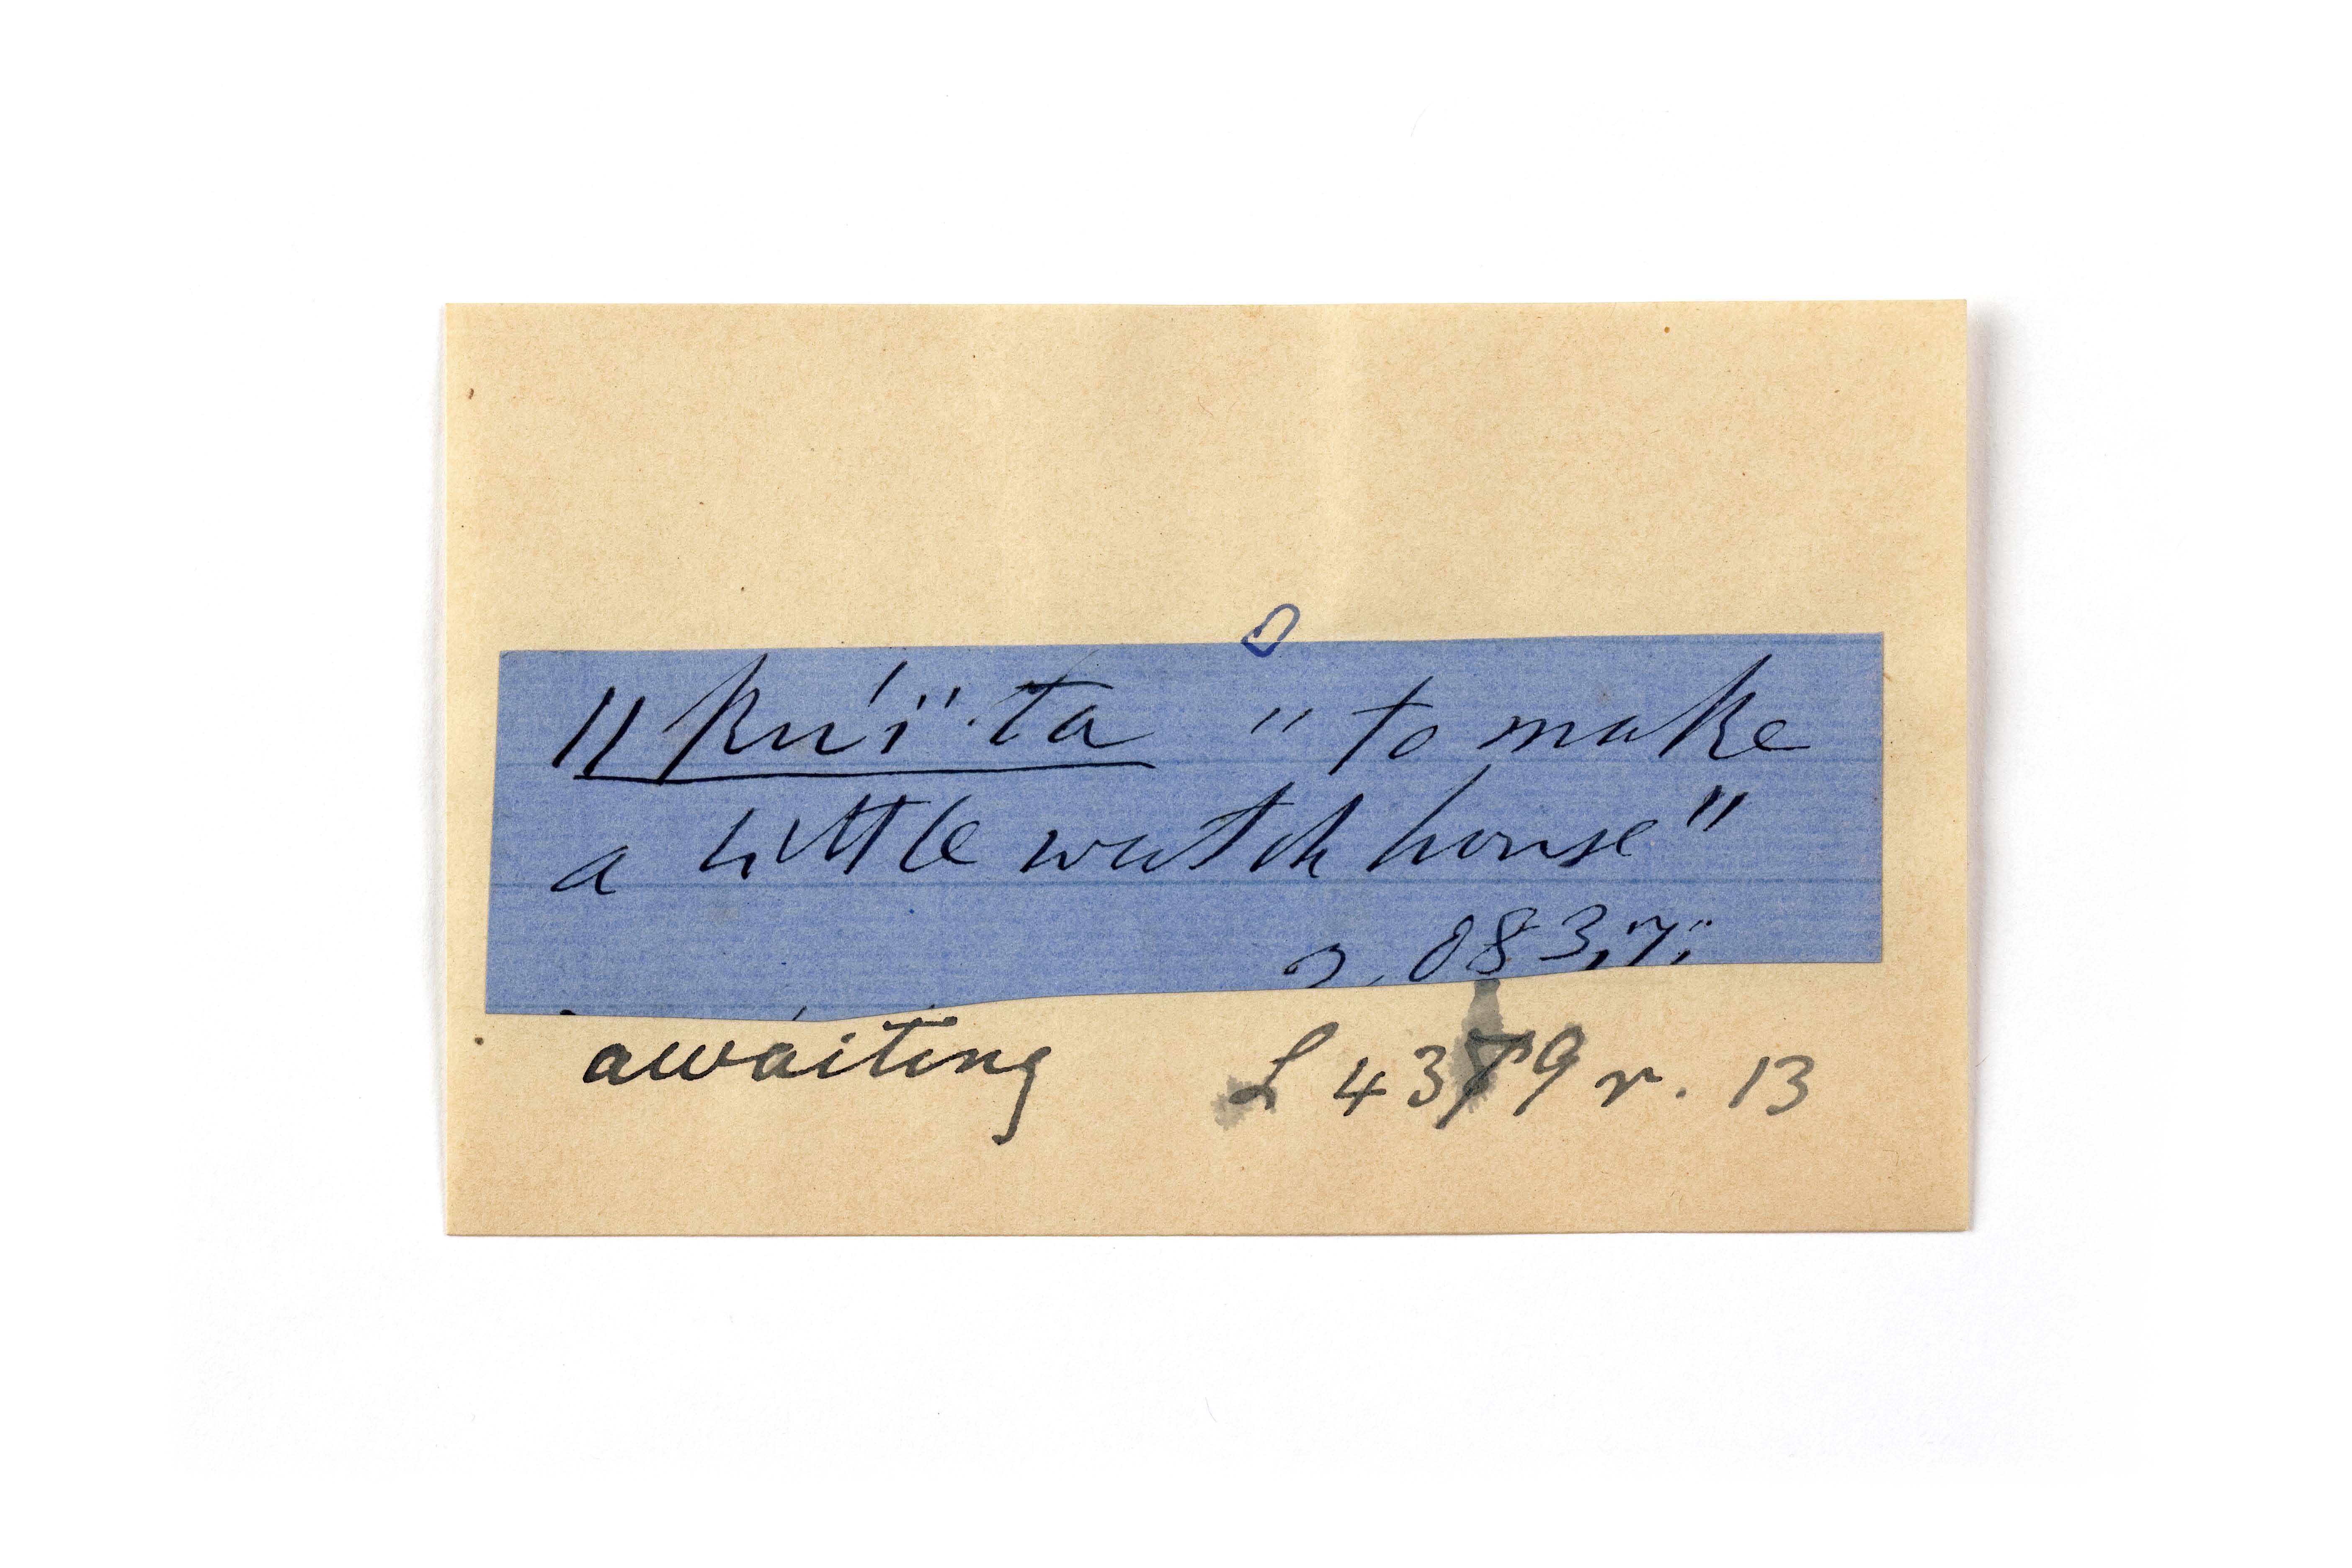 ǁkuï ta " to make
a little watch house"
2083
awaiting L 4379 r. 13